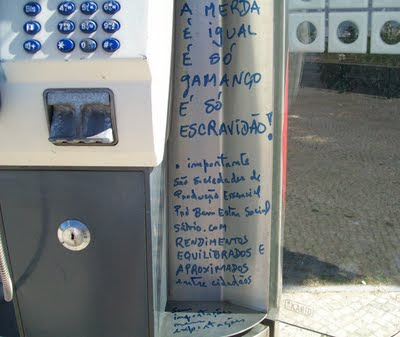 A MERDA
É IGUAL
É SÓ
GAMANÇO
É SÓ
ESCRAVIDÃO!
• importante
São Sociedades de
Produção Essencial
Pró Bem Estar Social
Sábio. com
RENDIMENTOS
EQUILIBRADOS E
APROXIMADOS
entre cidadãos
Sem
importações
nem
exportações